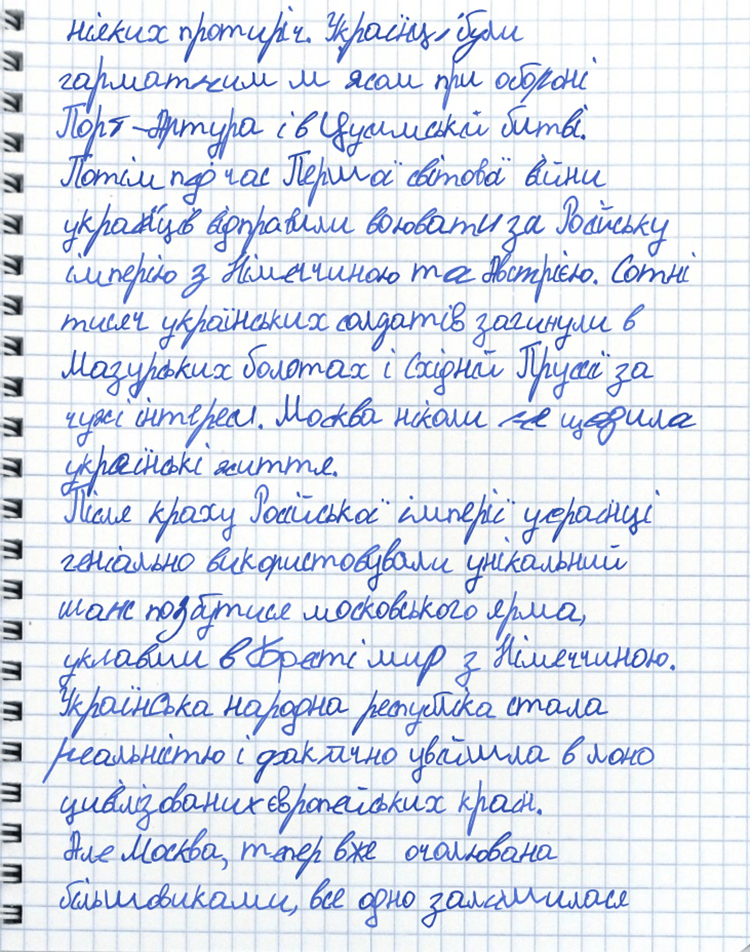 ніяких протиріч. Українці були
гарматним м'ясом при обороні
Порт-Артура і в Цусимській битві.
Потім під час Першої світової війни
українців відправили воювати за Російську
імперію з Німеччиною та Австрією. Сотні
тисяч українських солдатів загинули в
Мазурських болотах і Східній Пруссії за
чужі інтереси. Москва ніколи не щадила
українські життя.
Після краху Російської імперії українці
геніально використовували унікальний
шанс позбутися московського ярма,
уклавши в Бресті мир з Німеччиною.
Українська народна республіка стала
реальністю і фактично увійшла в лоно
цивілізованих європейських країн.
Але Москва, тепер вже очолювана
більшовиками, все одно залишилася